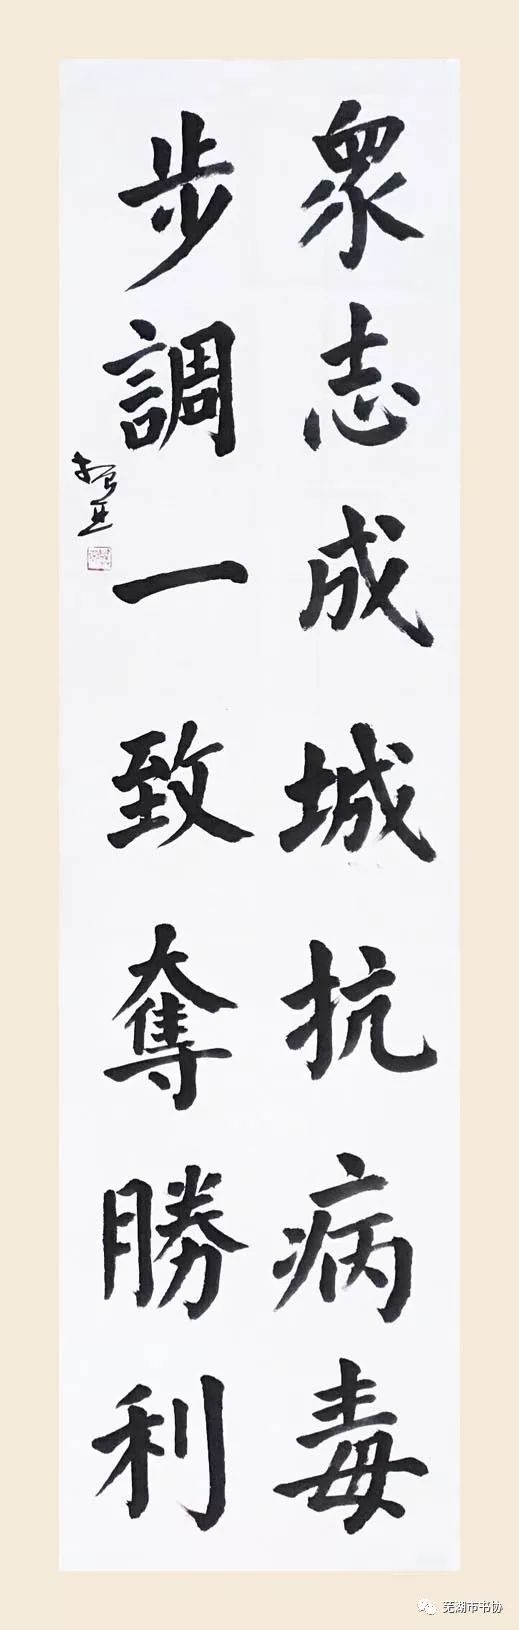 眾志成城抗病毒
步調一致奪勝利
芜湖市书协